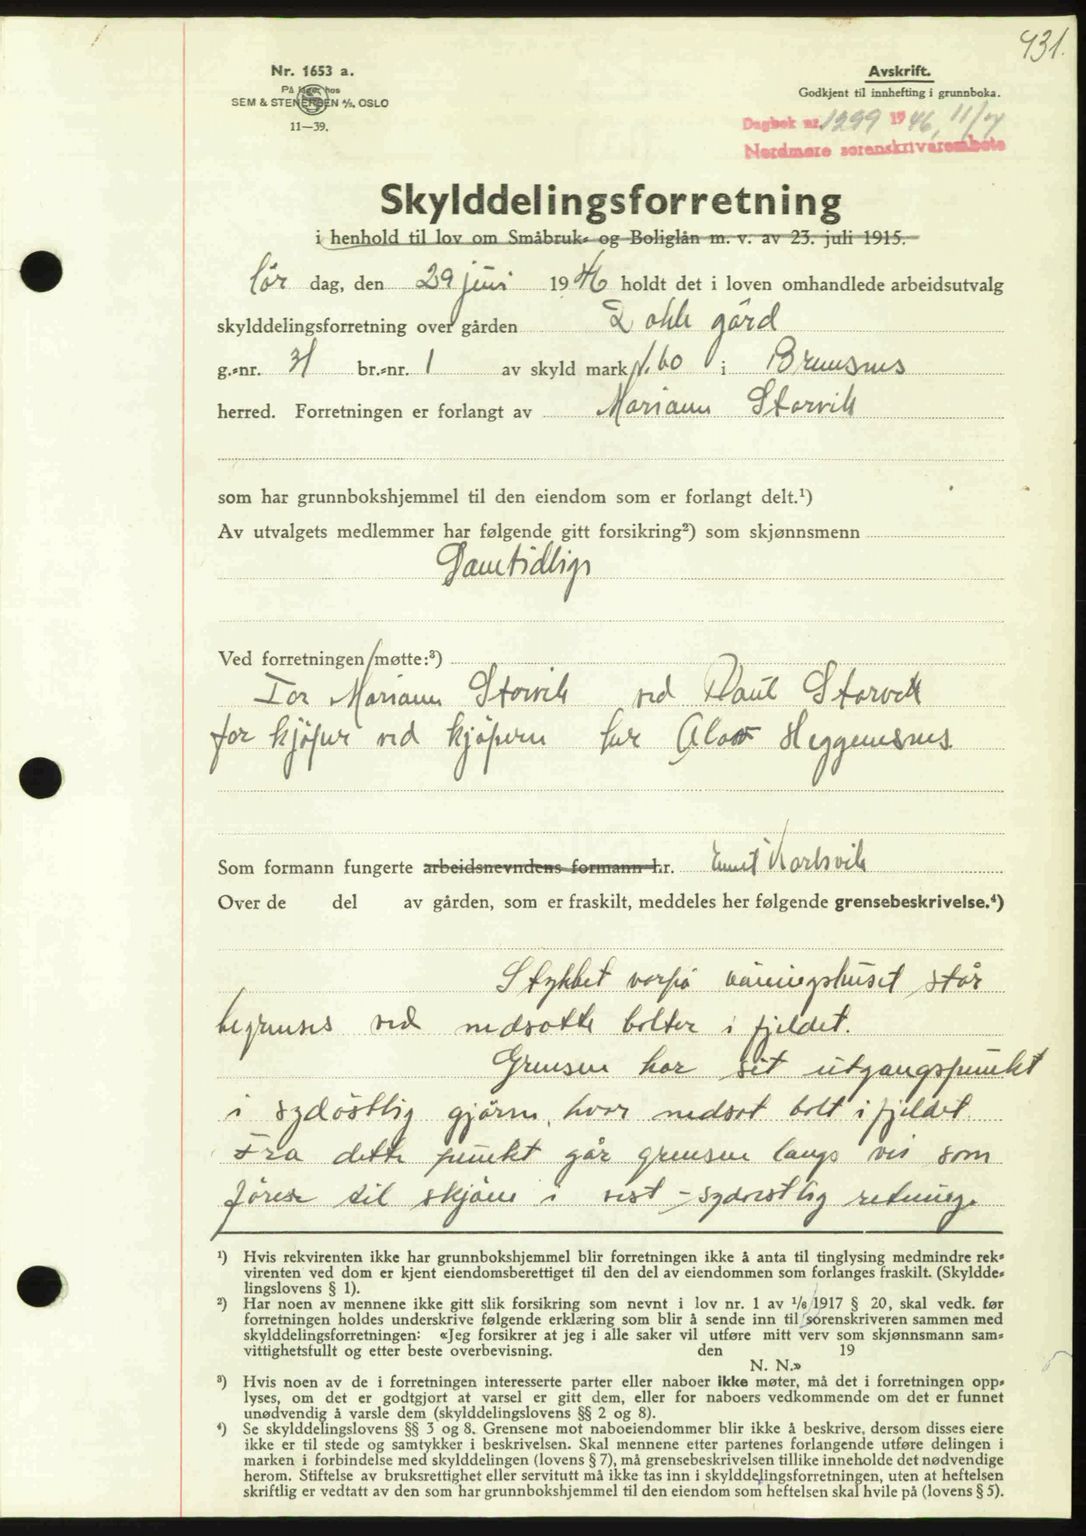 431.
Nr. 1653 a.
På lager hos
SEM & STENERSEN A/S, OSLO
11—39.
Avskrift.
Godkjent til innhefting i grunnboka.
Dagbok nr. 1299 1946, 11/7
Nordmøre sorenskrivarembete
Skylddelingsforretning
i henhold til lov om Småbruk- og Boliglån m. v. av 23. juli 1915.
lør dag, den 29 juni 1946 holdt det i loven omhandlede arbeidsutvalg
skylddelingsforretning over gården gård
g.-nr. 31 br.-nr. 1 av skyld mark 1.60 i Bremsnes
herred. Forretningen er forlangt av Mariann Storvik
som har grunnbokshjemmel til den eiendom som er forlangt delt.¹)
Av utvalgets medlemmer har følgende gitt forsikring²) som skjønnsmenn
Samtidlige
Ved forretningen møtte:³)
For Mariann Storvik ved Paul Storvik
for kjøper ved kjøperen her Heggemsnes
Som formann fungerte arbeidsnevndens formann hr. Karlsvik
Over de del av gården, som er fraskilt, meddeles her følgende grensebeskrivelse.⁴)
Stykket vorpå våningshuset står
begrenses ved nedsatte bolter i fjeldet.
Grensen har sit utgangspunkt
i sydöstlig gjörne, hvor nedsat bolt i fjeldet.
Fra dette punkt går grensen langs vei som
förer til skjöen i vest - sydvestlig retning.
¹) Hvis rekvirenten ikke har grunnbokshjemmel blir forretningen ikke å anta til tinglysing medmindre rek-
virenten ved dom er kjent eiendomsberettiget til den del av eiendommen som forlanges fraskilt. (Skyldde-
lingslovens § 1).
²) Har noen av mennene ikke gitt slik forsikring som nevnt i lov nr. 1 av 1/6 1917 § 20, skal vedk. før
forretningen holdes underskrive følgende erklæring som blir å sende inn til sorenskriveren sammen med
skylddelingsforretningen: «Jeg forsikrer at jeg i alle saker vil utføre mitt verv som skjønnsmann sam-
vittighetsfullt og etter beste overbevisning. den 19
N. N.»
³) Hvis noen av de i forretningen interesserte parter eller naboer ikke møter, må det i forretningen opp-
lyses, om det er godtgjort at varsel er gitt dem, eller for naboers vedkommende om det er funnet
unødvendig å varsle dem (skylddelingslovens §§ 2 og 8).
⁴) Se skylddelingslovens §§ 3 og 8. Grensene mot naboeiendommer blir ikke å beskrive, dersom disses eiere
ikke er til stede og samtykker i beskrivelsen. Skal mennene etter partenes forlangende utføre delingen i
marken i forbindelse med skylddelingen (lovens § 7), må grensebeskrivelsen tillike inneholde det nødvendige
herom. Stiftelse av bruksrettighet eller servitutt må ikke tas inn i skylddelingsforretningen, uten at heftelsen
skriftlig er vedtatt av den som har grunnbokshjemmel til den eiendom som heftelsen skal hvile på (lovens § 5).